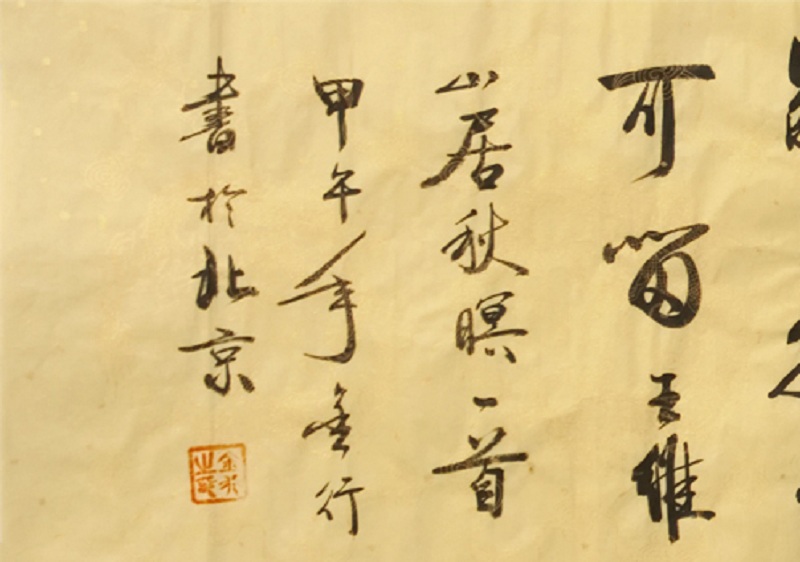 可留王維
山居秋暝一首
甲午年金行
書於北京